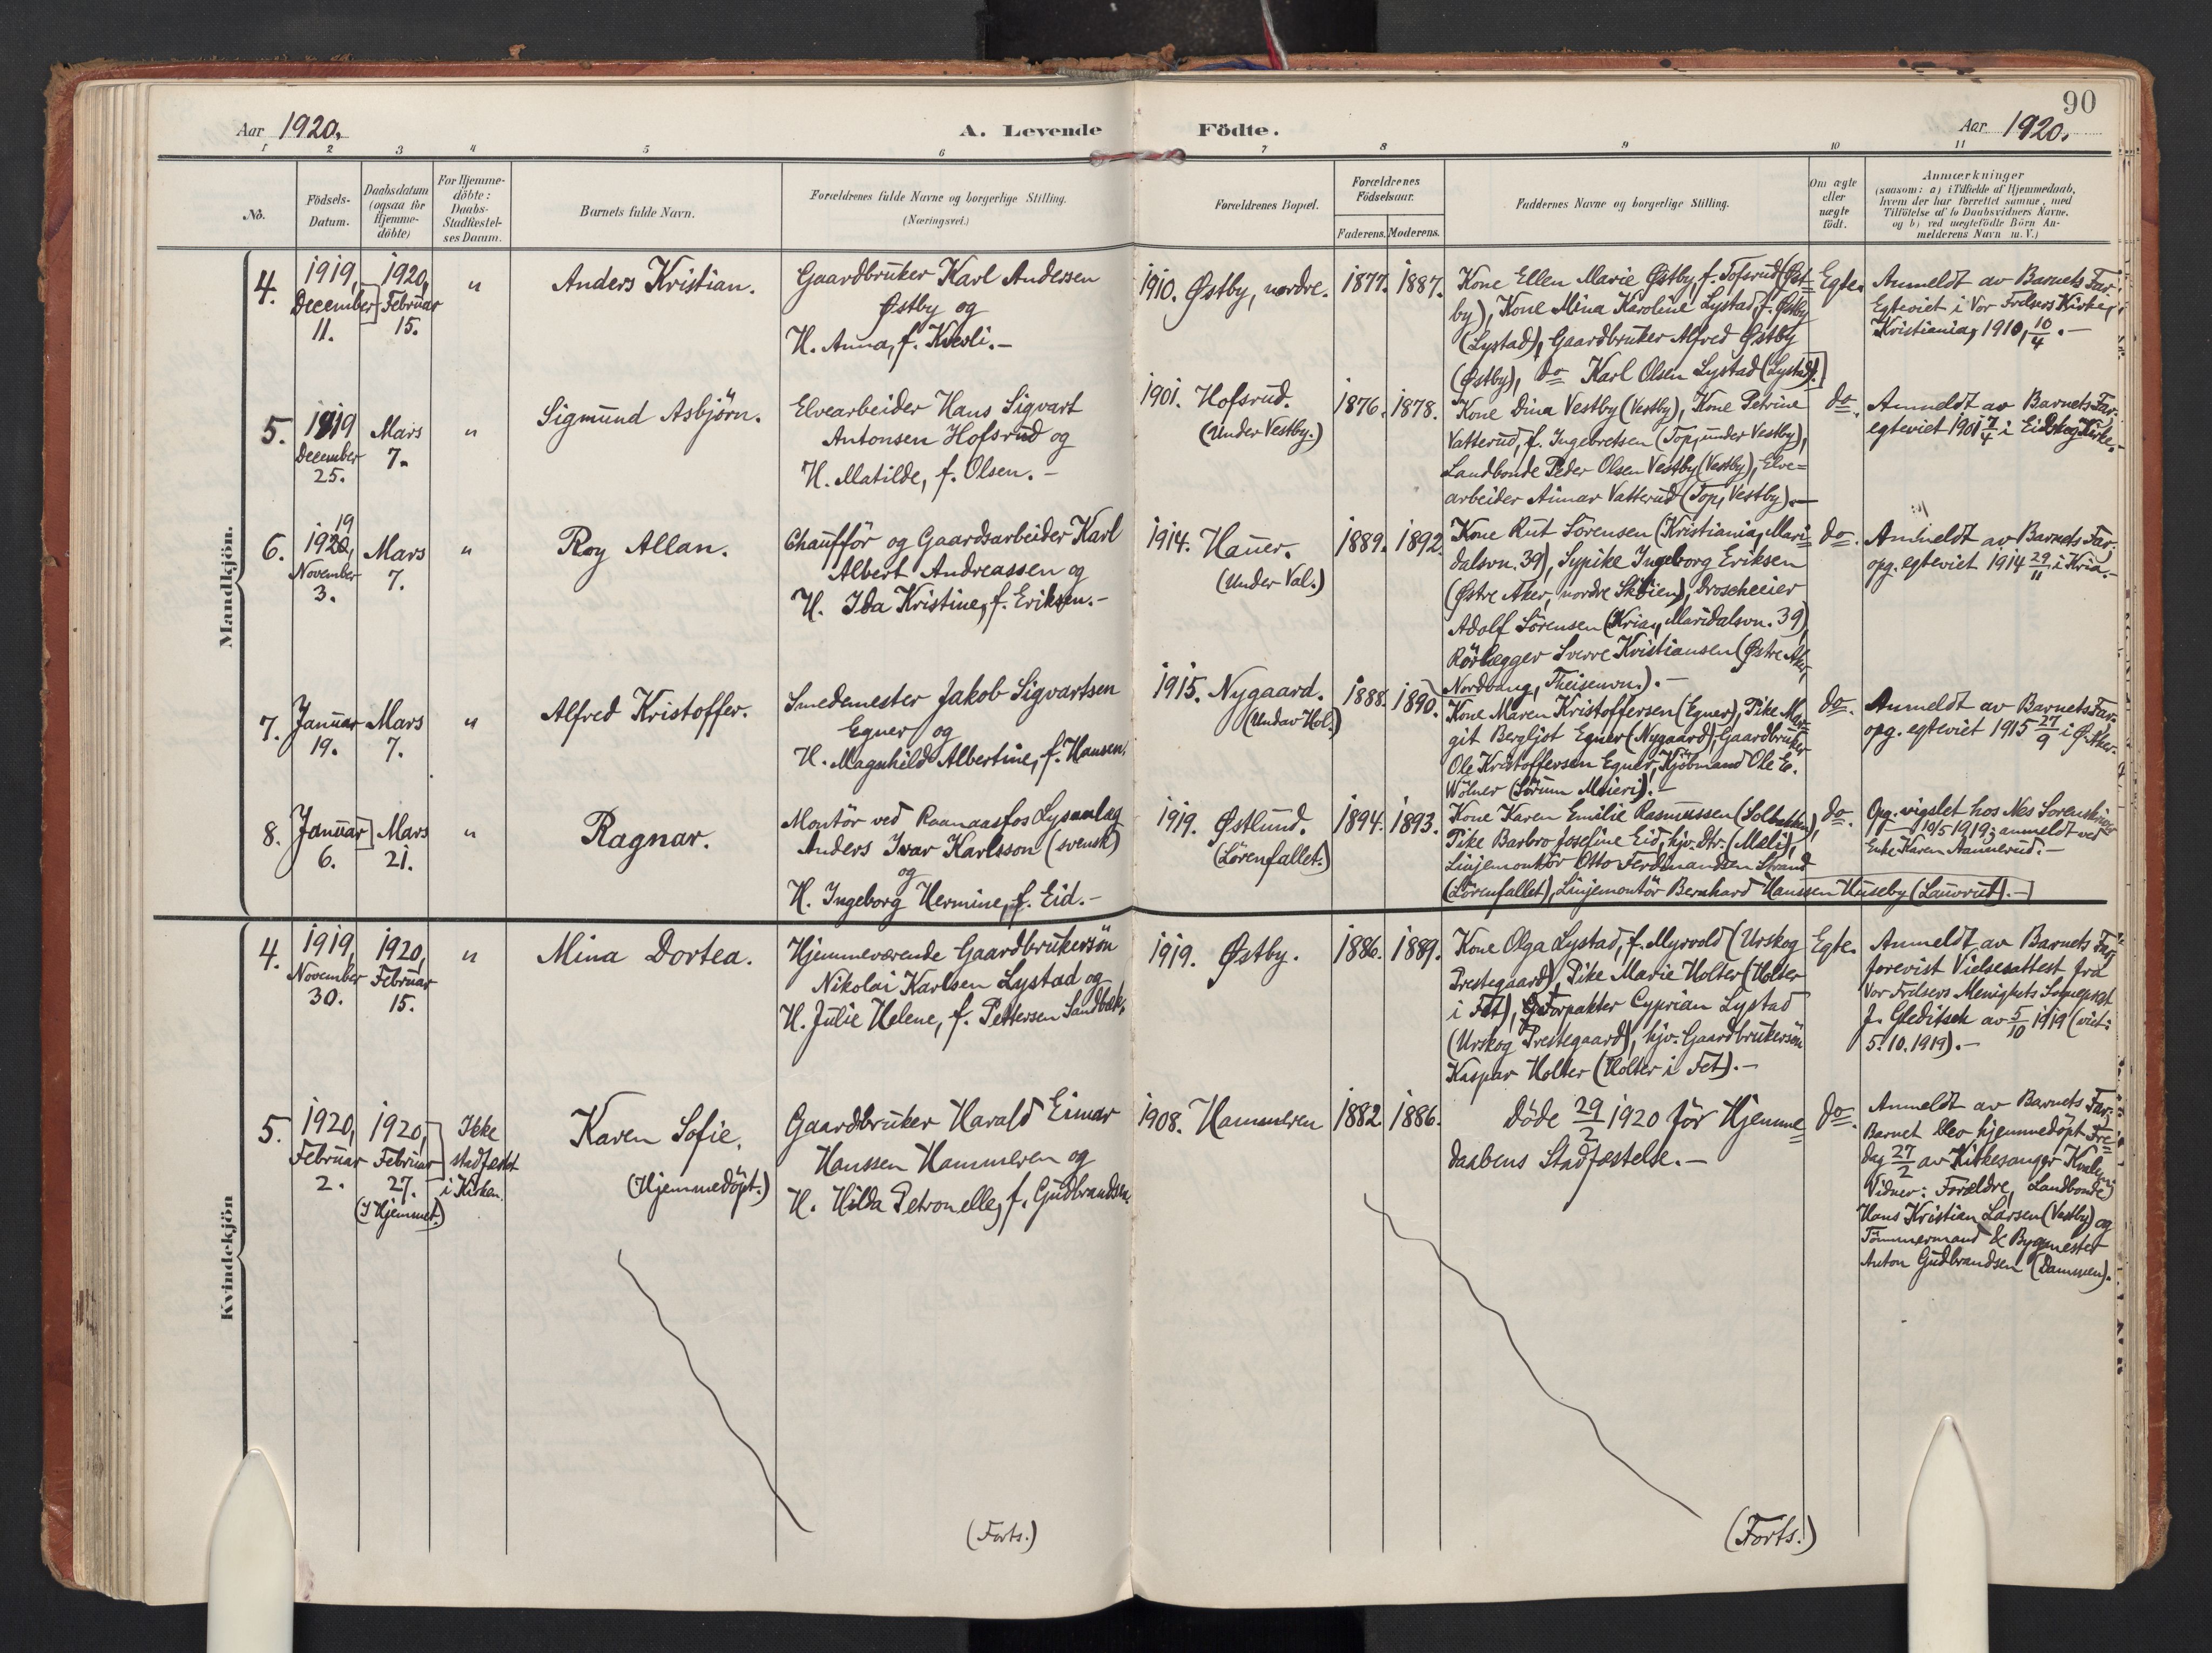 90
Aar 1920.
A. Levende Födte.
Aar 1920.
1 2 3 4 5 6 7 8 9 10 11
No.
Födsels-
Datum.
Daabsdatum
(ogsaa for
Hjemme-
döbte)
For Hjemme-
döbte:
Daabs-
Stadfæstel-
ses Datum.
Barnets fulde Navn.
Forældrenes fulde Navne og borgerlige Stilling.
(Næringsvei.)
Forældrenes Bopæl.
Forældrenes
Födselsaar.
Faderens. Moderens.
Faddernes Navne og borgerlige Stilling.
Om ægte
eller
uægte
födt.
Anmærkninger
(saasom: a) i Tilfælde af Hjemmedaab,
hvem der har forrettet samme, med
Tilföielse af to Daabsvidners Navne,
og b) ved uægtefödte Börn An-
melderens Navn m. V.)
Mandkjön.
4.
1919,
December
11.
1920,
Februar
15.
"
Anders Kristian.
Gaardbruker Karl Andersen
Østby og
H. Anna, f. Kværli.-
1910. Østby, nordre.
1877. 1887.
Kone Ellen Marie Østby, f. Tofsrud (Øst-
by), Kone Mina Karoline Lystad, f. Østby
(Lystad), Gaardbruker Alfred Østby
(Østby), do Karl Olsen Lystad (Lystad).
Egte.
Anmeldt av Barnets Far,
Egteviet i Vor Frelsers Kirke,
Kristiania, 1910, 10/4.-
5.
1919
December
25.
Mars
7.
"
Sigmund Asbjörn.
Elvearbeider Hans Sigvart
Antonsen Hofsrud og
H. Matilde, f. Olsen.-
1901. Hofsrud.
(Under Vestby.)
1876. 1878.
Kone Dina Vestby (Vestby), Kone Petrine
Vatterud, f. Ingebretsen (Top, under Vestby),
Landbonde Peder Olsen Vestby (Vestby), Elve=
arbeider Aimar Vatterud (Top, Vestby).-
do.
Anmeldt av Barnets Far,
egteviet 1901 7/4 i Eidskog Kirke.-
6.
19
1920,
November
3.
Mars
7.
"
Roy Allan.
Chaufför og Gaardsarbeider Karl
Albert Andreassen og
H. Ida Kristine, f. Eriksen.-
1914. Hauer.
(Under Val.)
1889. 1892.
Kone Rut Sörensen (Kristiania, Mari=
dalsvn. 39), Sypike Ingeborg Eriksen
(Østre Aker, nordre Sköien), Droscheeier
Adolf Sörensen (Kria, Maridalsvn. 39)
Rörlægger Sverre Kristiansen (Østre Aker,
Nordvang, Theisenvn.).-
do.
Anmeldt av Barnets Far,
opg. egteviet 1914 29/11 i Kria.-
7.
Januar
19.
Mars
7.
"
Alfred Kristoffer.
Smedemester Jakob Sigvartsen
Egner og
H. Magnhild Albertine, f. Hansen.
1915. Nygaard.
(Under Hol.)
1888. 1890.
Kone Maren Kristoffersen (Egner), Pike Mar=
git Bergljot Egner (Nygaard), Gaardbruker
Ole Kristoffersen Egner, Kjöbmand Ole E.
Wölner (Sörum Meieri).-
do.
Anmeldt av Barnets Far,
opg. egteviet 1915 27/9 i Ø. Aker.
8.
Januar
6.
Mars
21.
"
Ragnar.
Montör ved Raanaasfos Lysanlæg
Anders Ivar Karlsson (svensk)
og
H. Ingeborg Hermine, f. Eid.-
1919. Østlund.
(Lörenfallet.)
1894. 1893.
Kone Karen Emilie Rasmussen (Solbakken),
Pike Barbro Josefine Eid, hjv. Dtr. (Mæli),
Linjemontör Otto Ferdinandsen Strand
(Lörenfallet), Linjemontör Bernhard Hanssen Huseby (Lauvrut).-
do.
Opg. vigslet hos Nes Sorenskriver
10/5 1919; anmeldt ved
Enke Karen Aannerud.-
Kvindekjön
4.
1919,
November
30.
1920,
Februar
15.
"
Mina Dortea.
Hjemmeværende Gaardbrukersön
Nikolai Karlsen Lystad og
H. Julie Helene, f. Pettersen Sandbæk.
1919. Østby.
1886. 1889.
Kone Olga Lystad, f. Myrvold (Urskog
Prestegaard), Pike Marie Holter (Holter
i Fet), Forpakter Cyprian Lystad
(Urskog Prestegaard), hjv. Gaardbrukersön
Kaspar Holter (Holter i Fet).-
Egte.
Anmeldt av Barnets Far,
forevist Vielsesattest fra
Vor Frelsers Menighets Sogneprest
J. Gleditsch av 5/10 1919 (viet:
5.10.1919).-
5.
1920,
Februar
2.
1920,
Februar
27.
(I Hjemmet.)
Ikke
stadfæstet
i Kirken.
Karen Sofie.
(Hjemmedöpt.)
Gaardbruker Harald Eimar
Hanssen Hammeren og
H. Hilda Petronelle, f. Gudbrandsen.
1908. Hammeren
1882. 1886.
Döde 29/2 1920 för Hjemme=
daabens Stadfæstelse.-
do.
Anmeldt av Barnets Far;
Barnet blev hjemmedöpt Fre=
dag 27/2 av Kirkesanger
Vidner: Forældre, Landbonde
Hans Kristian Larsen (Vestby) og
Tömmermand & Bygmester
Anton Gudbrandsen (Dammen).
(Forts.)
(Forts.)